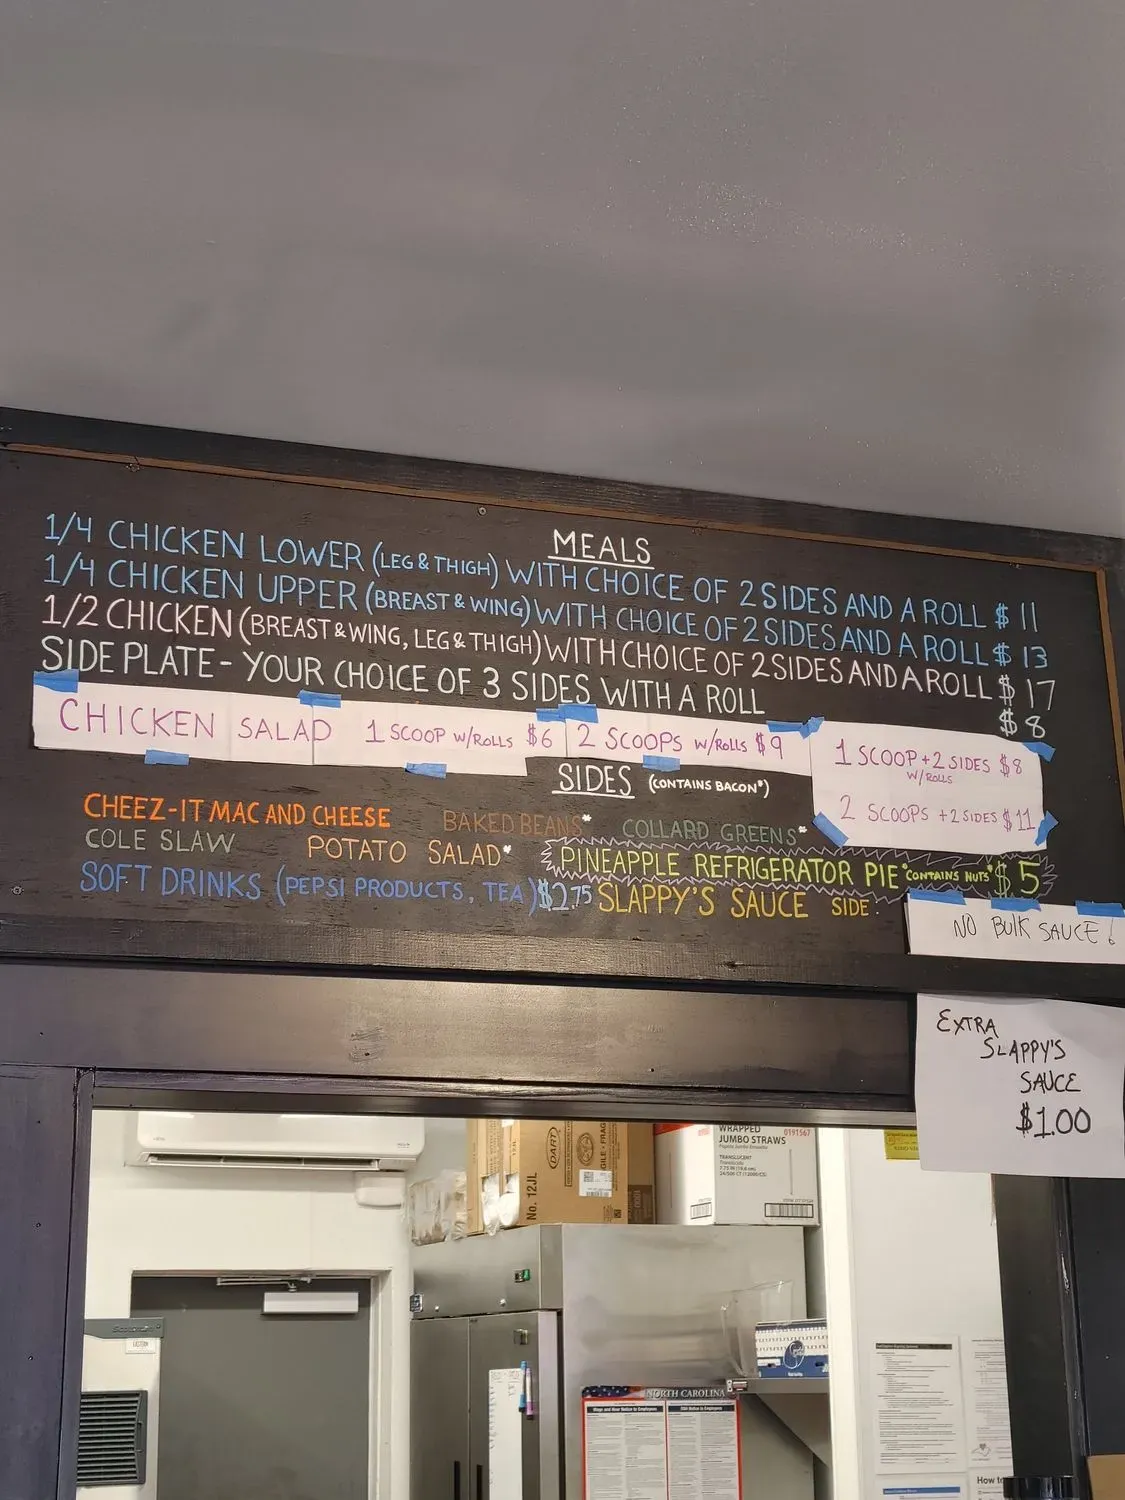 MEALS
1/4 CHICKEN LOWER (LEG & THIGH) WITH CHOICE OF 2 SIDES AND A ROLL $11
1/4 CHICKEN UPPER (BREAST & WING) WITH CHOICE OF 2 SIDES AND A ROLL $13
1/2 CHICKEN (BREAST & WING, LEG & THIGH) WITH CHOICE OF 2 SIDES AND A ROLL $17
SIDE PLATE - YOUR CHOICE OF 3 SIDES WITH A ROLL $8
CHICKEN SALAD 1 SCOOP W/ROLLS $6 2 SCOOPS W/ROLLS $9
1 SCOOP + 2 SIDES $8
W/ROLLS
2 SCOOPS + 2 SIDES $11
SIDES (CONTAINS BACON*)
CHEEZ-IT MAC AND CHEESE BAKED BEANS* COLLARD GREENS*
COLE SLAW POTATO SALAD* PINEAPPLE REFRIGERATOR PIE *CONTAINS NUTS* $5
SOFT DRINKS (PEPSI PRODUCTS, TEA) $2.75 SLAPPY'S SAUCE SIDE.
NO BULK SAUCE!
EXTRA
SLAPPY'S
SAUCE
$1.00
WRAPPED 0191567
JUMBO STRAWS
TRANSLUCENT
DART
No. 12JL
NORTH CAROLINA
Wage and Hour Notice to Employees
OSH Notice to Employees
How to